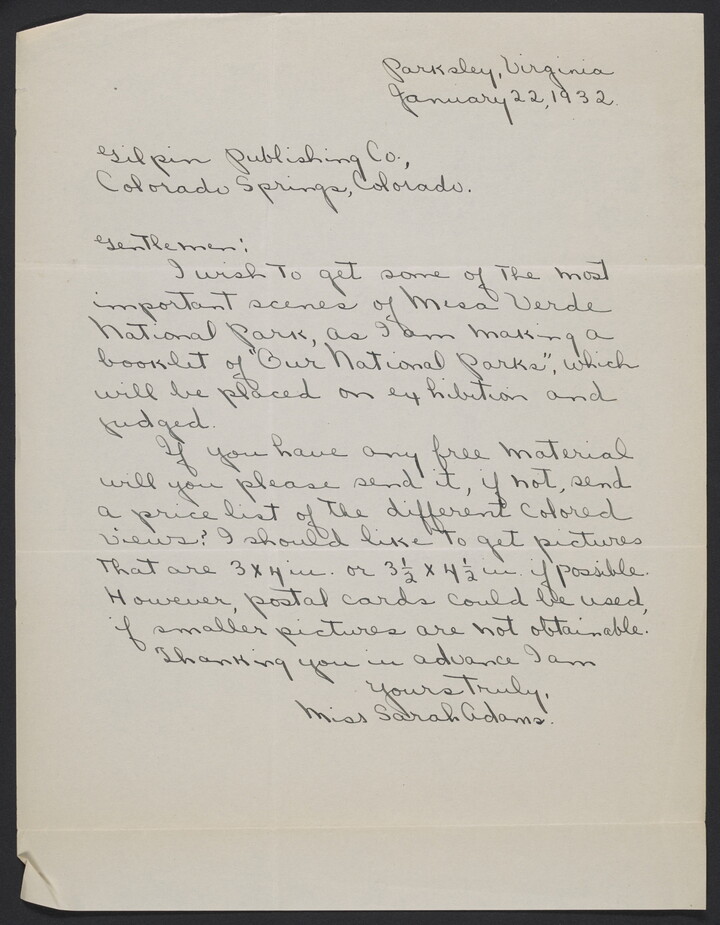 Parksley, Virginia
January 22, 1932.
Gilpin Publishing Co.,
Colorado Springs, Colorado.
Gentlemen:
I wish to get some of the most
important scenes of Mesa Verde
National Park, as I am making a
booklet of "Our National Parks", which
will be placed on exhibition and
judged.
If you have any free material
will you please send it, if not, send
a price list of the different colored
views? I should like to get pictures
that are 3 x 4 in. or 3 1/2 x 4 1/2 in. if possible.
However, postal cards could be used,
if smaller pictures are not obtainable.
Thanking you in advance I am
Yours Truly,
Miss Sarah Adams.